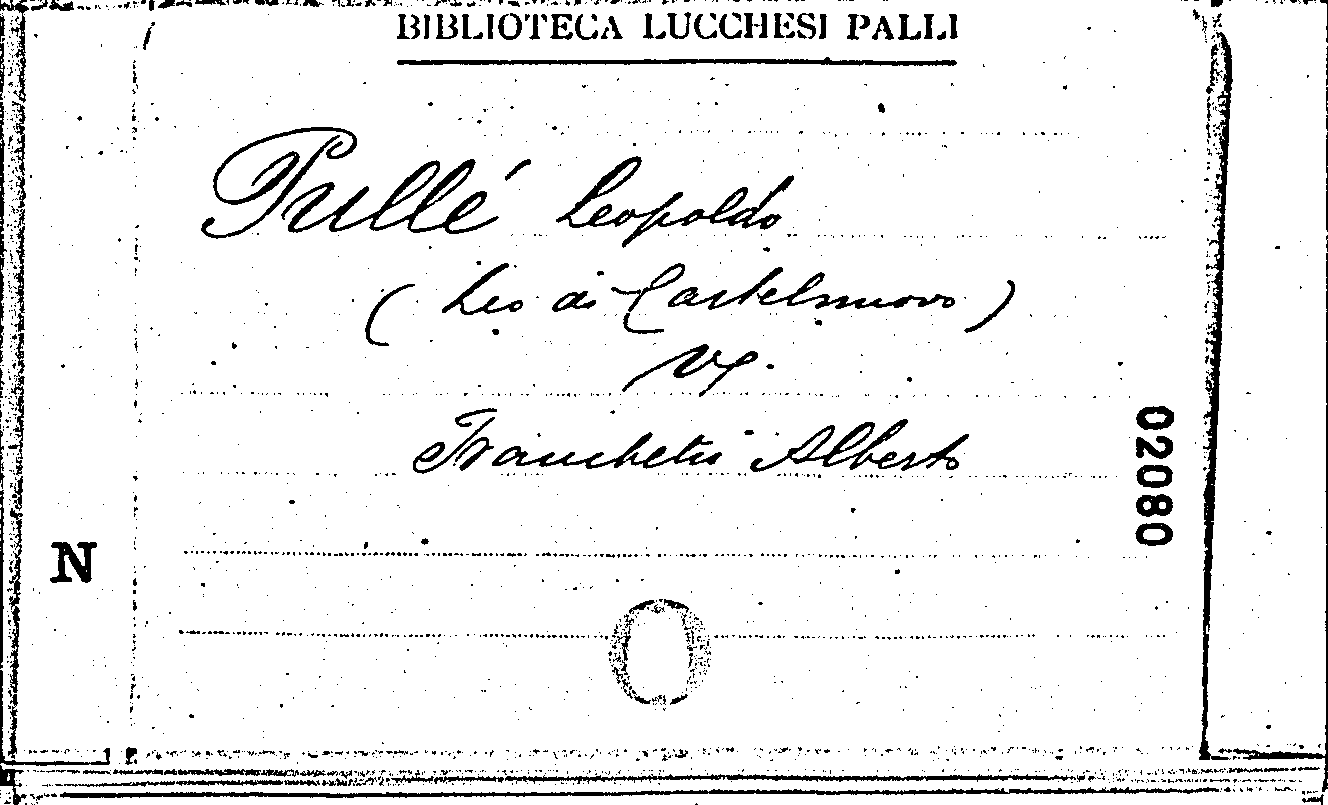 BIBLIOTECA LUCCHESI PALLI
Pullé Leopoldo
(Leo di Castelnuovo)
V.
Franchetti Alberto
02080
N